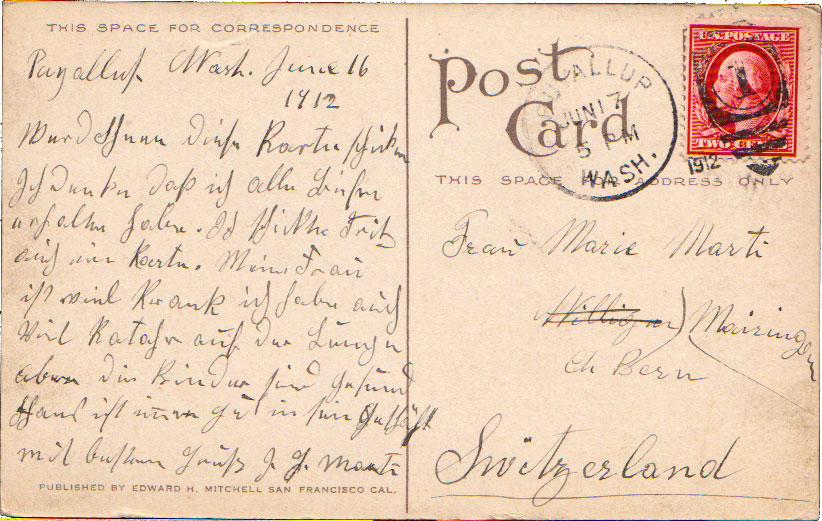 THIS SPACE FOR CORRESPONDENCE
Puyallup Wash. June 16
1912
diese Karte schicken
Ich denke daß ich alle Briefe
erhalten habe. Ich schickte Fritz
auch eine Karte. Meine Frau
ist viel Krank ich habe auch
viel Katahr auf der Lunge
aber die Kinder sind gesund
Hans ist immer in sein Geschäft
mit besten Gruß J. G. Marti
PUBLISHED BY EDWARD H. MITCHELL SAN FRANCISCO CAL.
Post
Card
PUYALLUP
JUN 17
5 PM
WASH.
1912
U.S. POSTAGE
1
TWO CENTS
THIS SPACE FOR ADDRESS ONLY
Frau Marie Marti
Willigen) Meiringen
Ct Bern
Switzerland